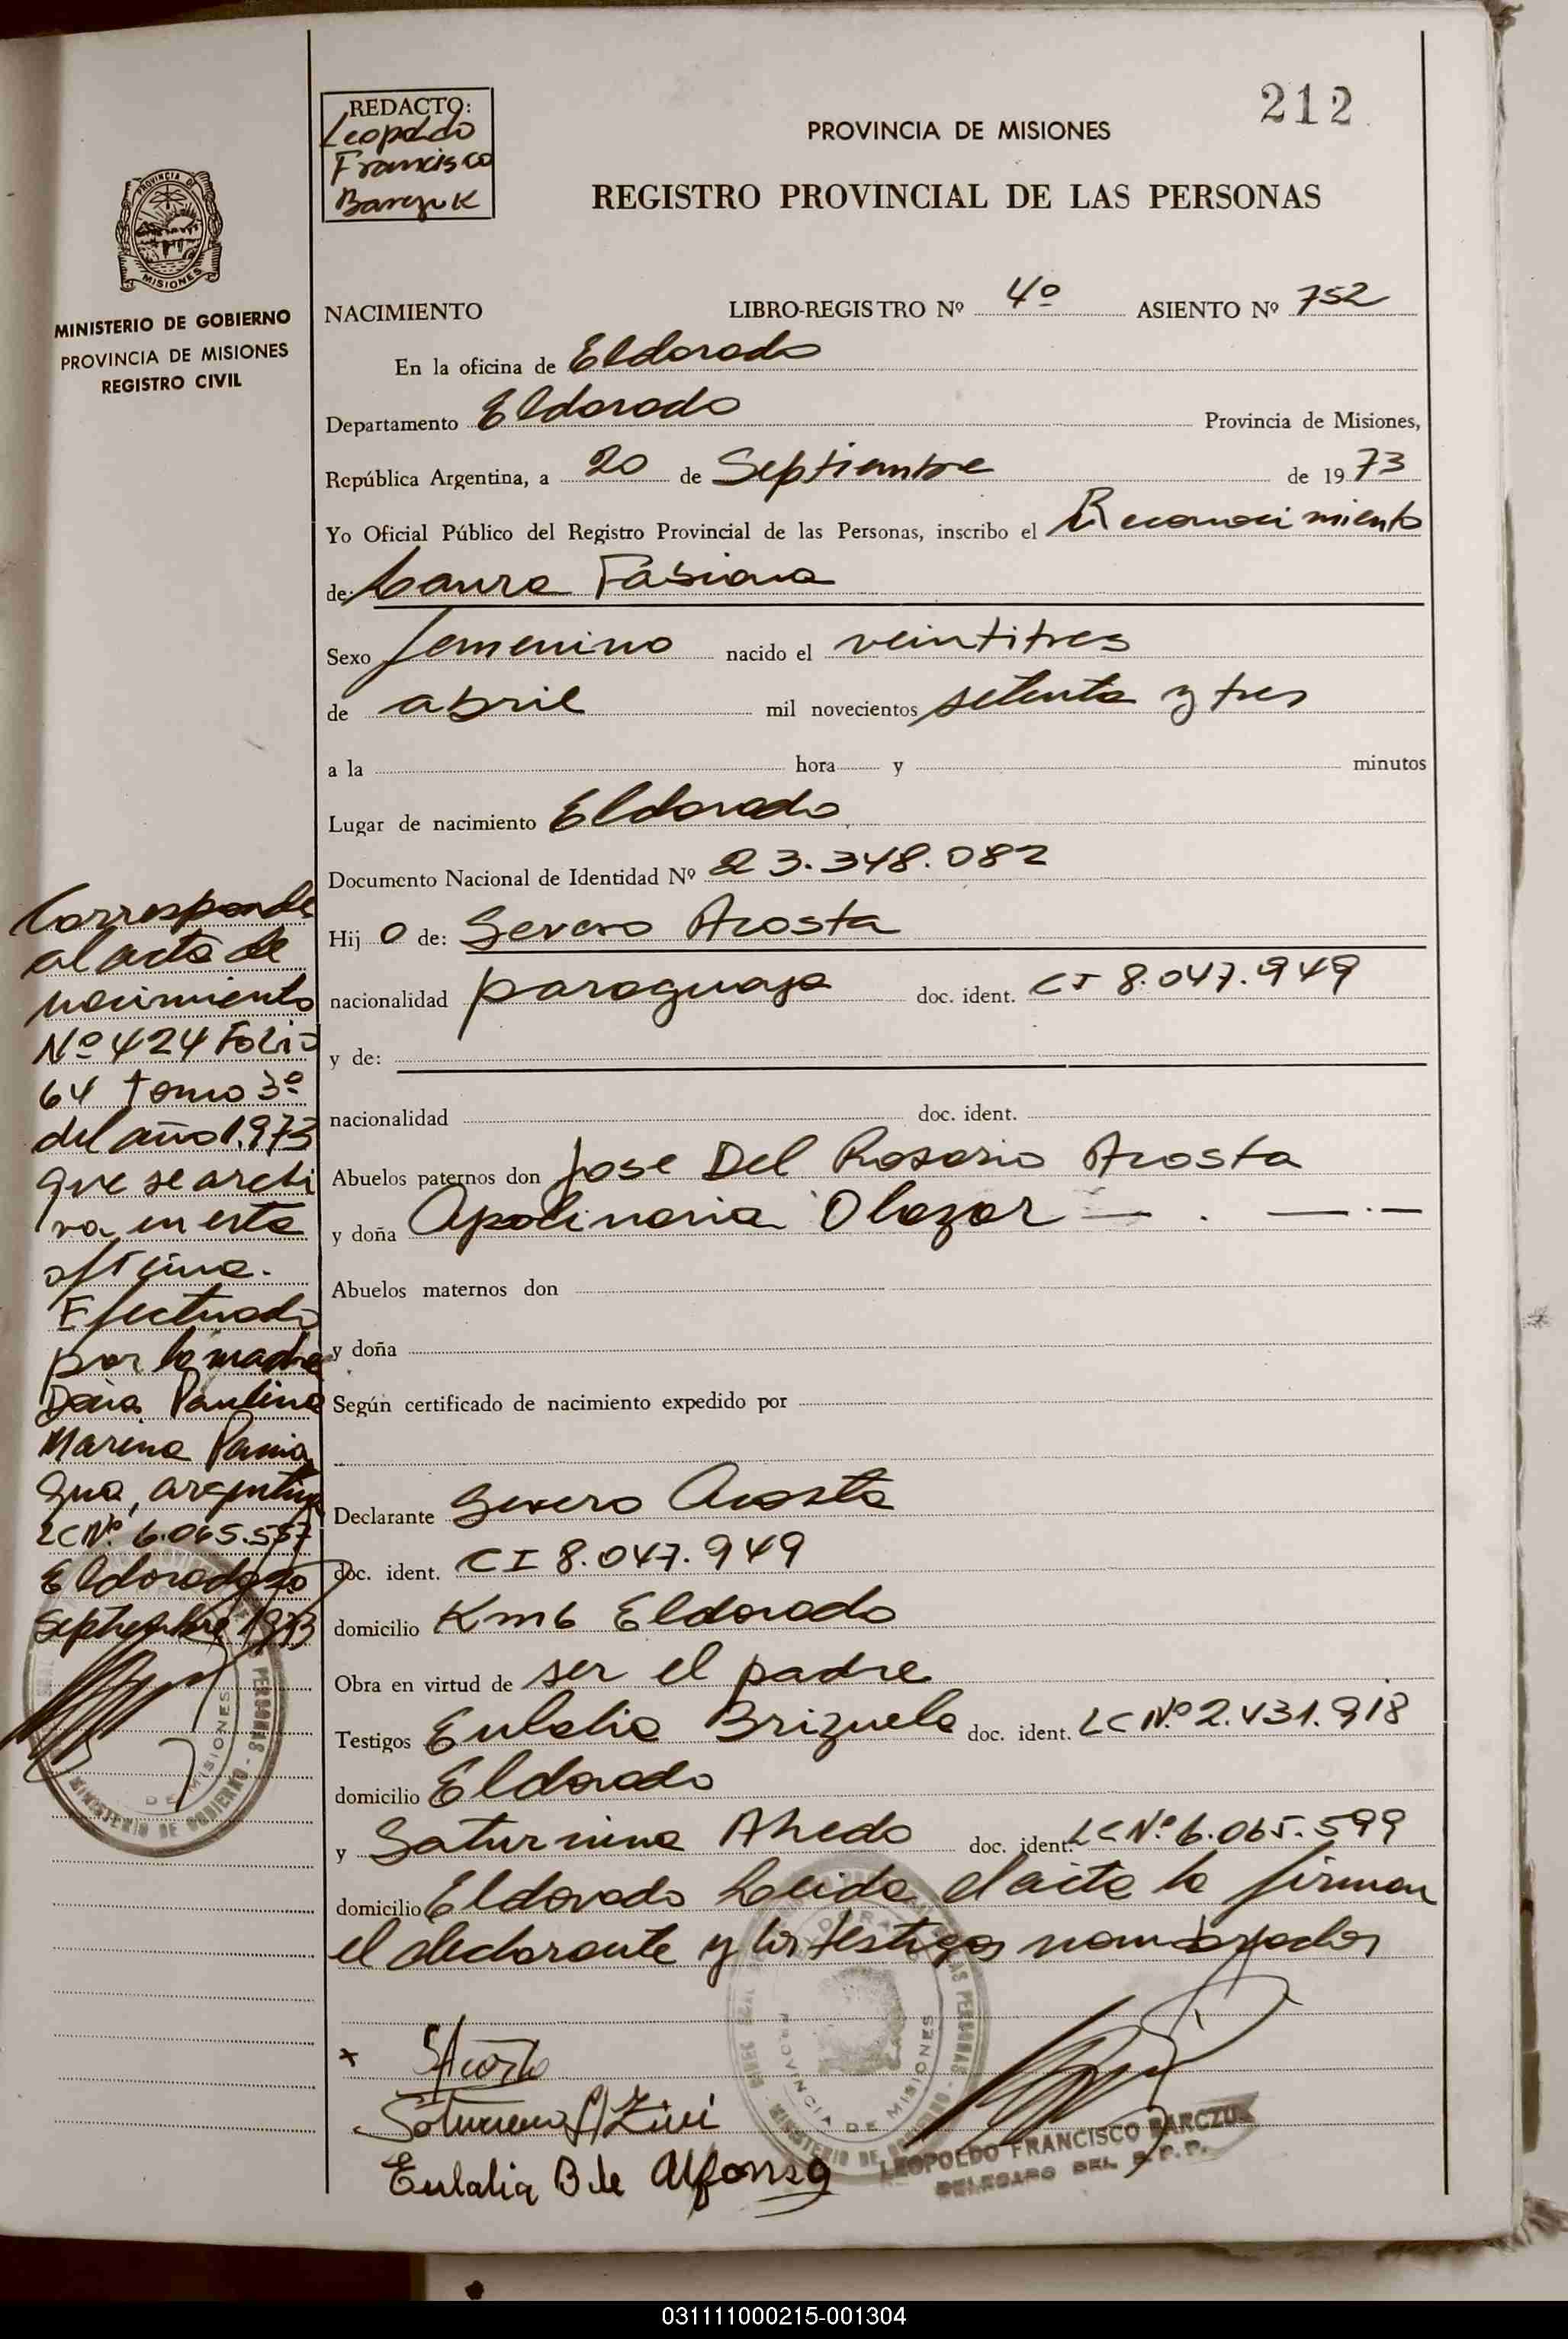 212
REDACTO:
Leopoldo
Francisco
Barczuk
PROVINCIA DE MISIONES
REGISTRO PROVINCIAL DE LAS PERSONAS
PROVINCIA DE
MISIONES
MINISTERIO DE GOBIERNO
PROVINCIA DE MISIONES
REGISTRO CIVIL
NACIMIENTO LIBRO-REGISTRO Nº 4º ASIENTO Nº 752
En la oficina de Eldorado
Departamento Eldorado Provincia de Misiones,
República Argentina, a 20 de Septiembre de 1973
Yo Oficial Público del Registro Provincial de las Personas, inscribo el Reconocimiento
de: Laura Fabiana
Sexo femenino nacido el veintitres
de abril mil novecientos setenta y tres
a la hora y minutos
Lugar de nacimiento Eldorado
Documento Nacional de Identidad Nº 23.348.082
Hij o de: Severo Acosta
nacionalidad paraguaya doc. ident. CI 8.047.949
y de:
nacionalidad doc. ident.
Abuelos paternos don Jose Del Rosario Acosta
y doña Apolinaria Olazar — . — . —
Abuelos maternos don
y doña
Según certificado de nacimiento expedido por
Declarante Severo Acosta
doc. ident. CI 8.047.949
domicilio Km 6 Eldorado
Obra en virtud de ser el padre
Testigos Eulalia Brizuela doc. ident. LC Nº 2.431.918
domicilio Eldorado
y Saturnina Ahedo doc. ident. LC Nº 6.065.599
domicilio Eldorado Leida el acta la firman
el declarante y los testigos nombrados
Corresponde
al acta de
nacimiento
Nº 424 Folio
64 tomo 3º
del año 1.973
que se archi
va en esta
oficina.
Efectuado
por la madre
Doña Paulina
Marina Pania
gua, argentina
LC Nº 6.065.557
Eldorado 20
septiembre 1973
MINISTERIO DE GOBIERNO - PERSONAS
DE MISIONES
x SAcosta
Eulalia B de Alfonso
PROVINCIA DE MISIONES
MINISTERIO DE GOBIERNO - LAS PERSONAS
LEOPOLDO FRANCISCO BARCZUK
DELEGADO DEL R. P. P.
031111000215-001304